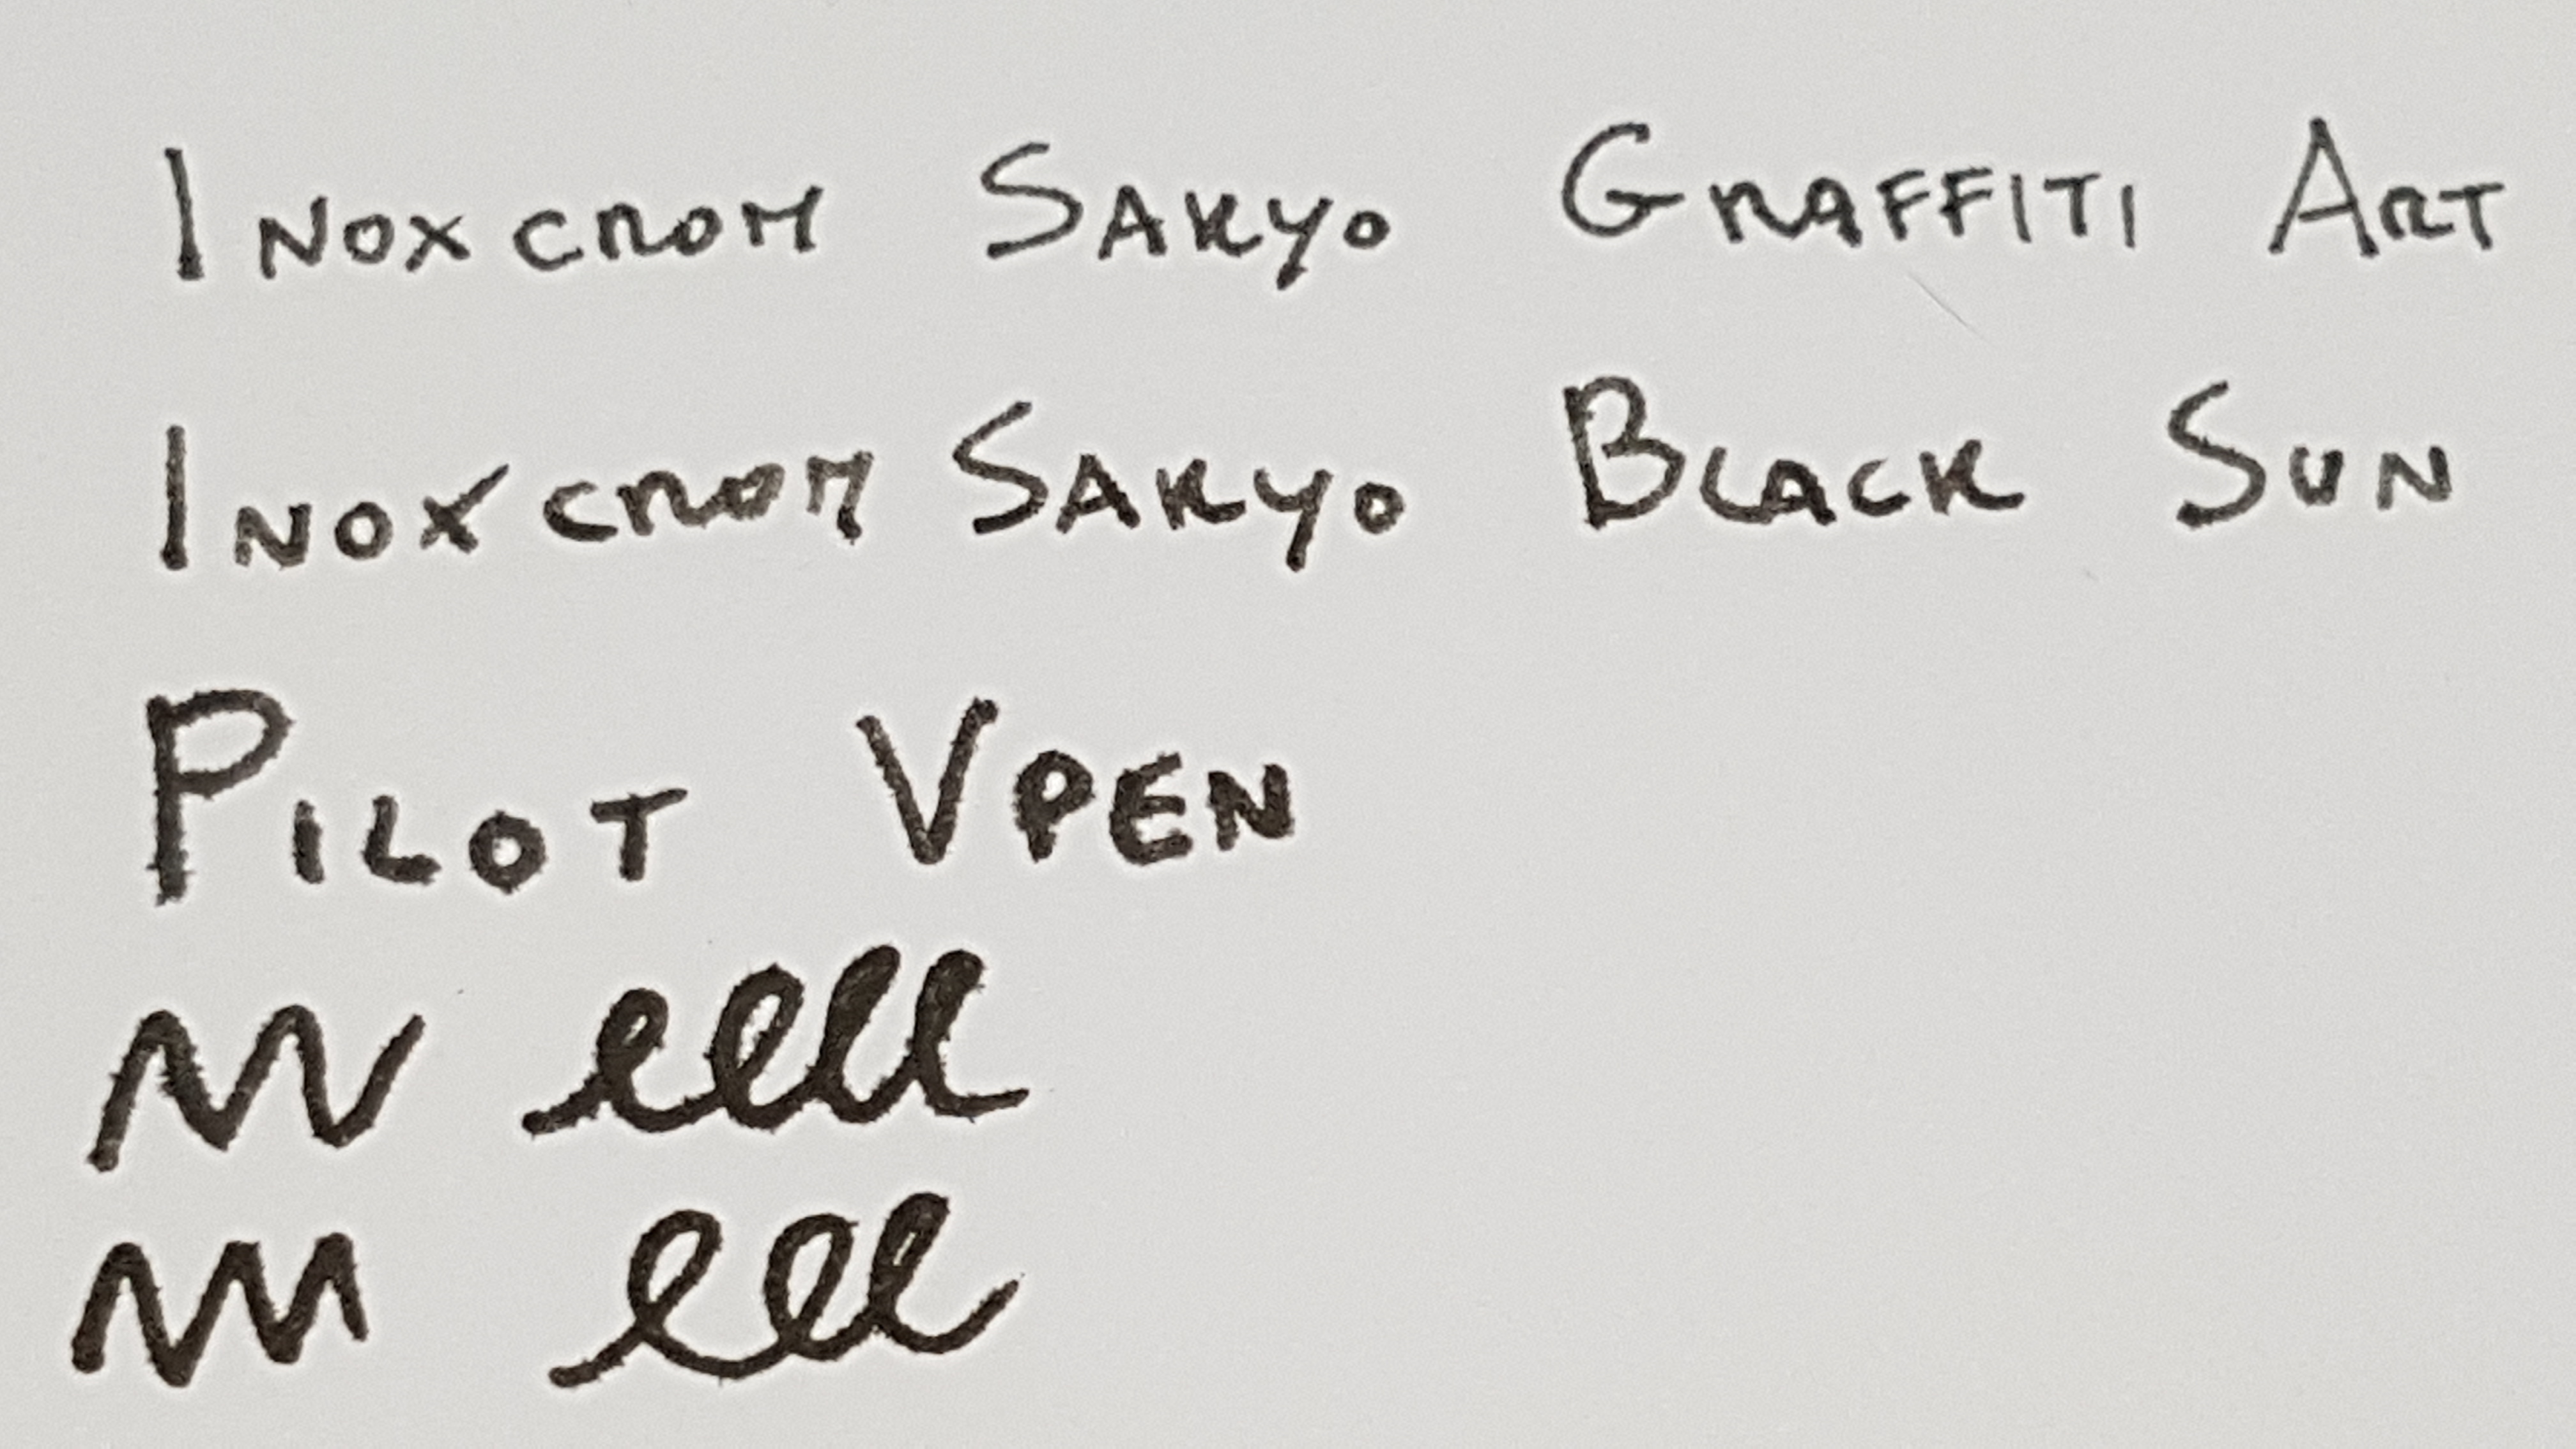 Inoxcrom Sakyo Graffiti Art
Inoxcrom Sakyo Black Sun
Pilot Vpen
eell
eee